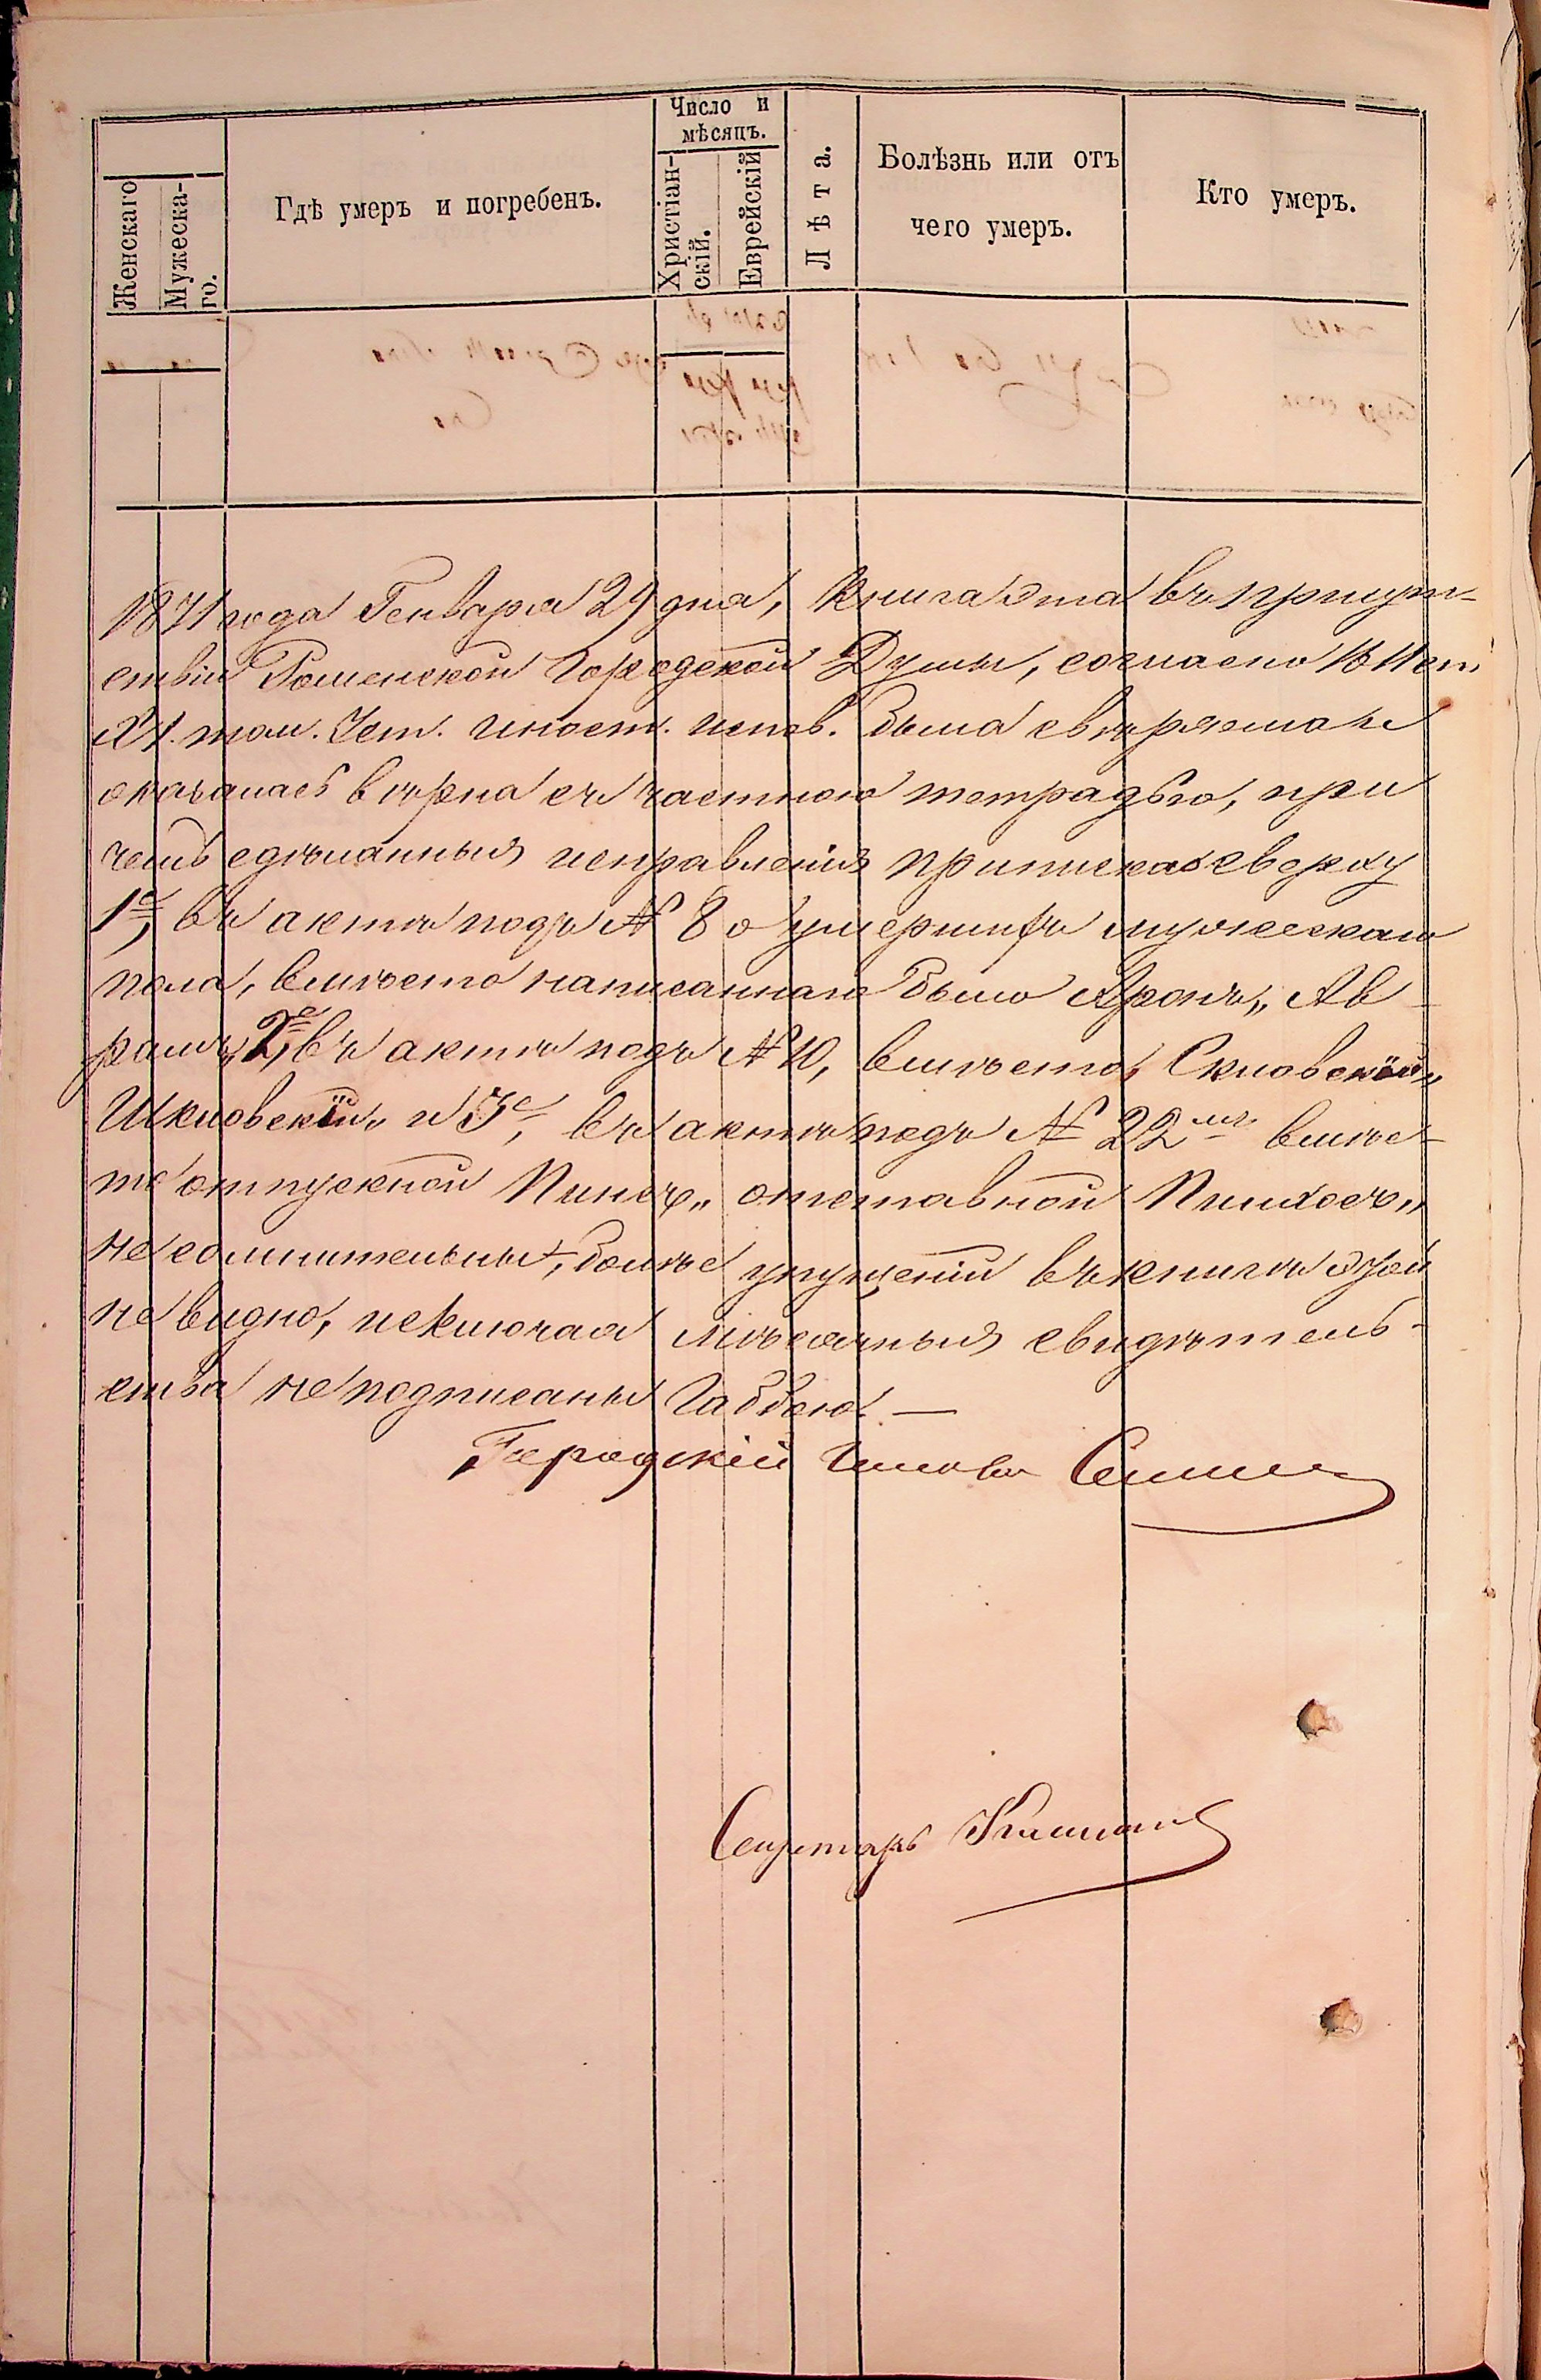 Женскаго
Мужеска-
го.
Гдѣ умеръ и погребенъ.
Число и
мѣсяцъ.
Христіан-
скій.
Еврейскій
Лѣта.
Болѣзнь или отъ
чего умеръ.
Кто умеръ.
1871 года Генваря 29 дня, Книга эта въ присут-
ствіи Роменской Городской Думы, согласно ст.
XI. том. Уст. Иност. испов. была свѣряема и
оказалась вѣрна съ частною тетрадью, при
чемъ сдѣланныя исправленія припискою сверху
1е, въ актѣ подъ № 8 о умершихъ мужескаго
пола, вмѣсто написаннаго было Аронъ„ Ав-
рамъ„ 2е, въ актѣ подъ № 10, вмѣсто, Скловскій„
Шкловскій„ и 3е, въ актѣ подъ № 22мъ вмѣс-
то отпускной Пинсъ„ отставной Пинхосъ„
не сомнительны, болѣе упущеній въ книгѣ этой
не видно, исключая мѣсячныя свидѣтель-
ства не подписаны Габбею. —
Городскій Голова
Секретарь